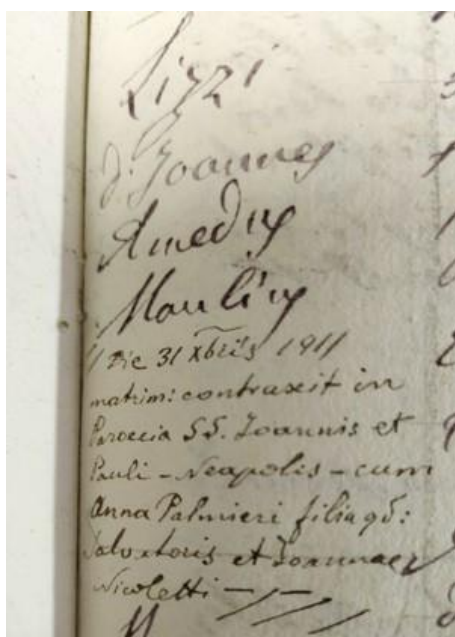 Lizzi
d. Joannes
Amedeus
Die 31 Xbris 1911
matrim: contraxit in
Paroecia SS. Joannis et
Pauli - Neapolis - cum
Anna Palmieri filia qd:
Salvatoris et Joannae
Nicoletti